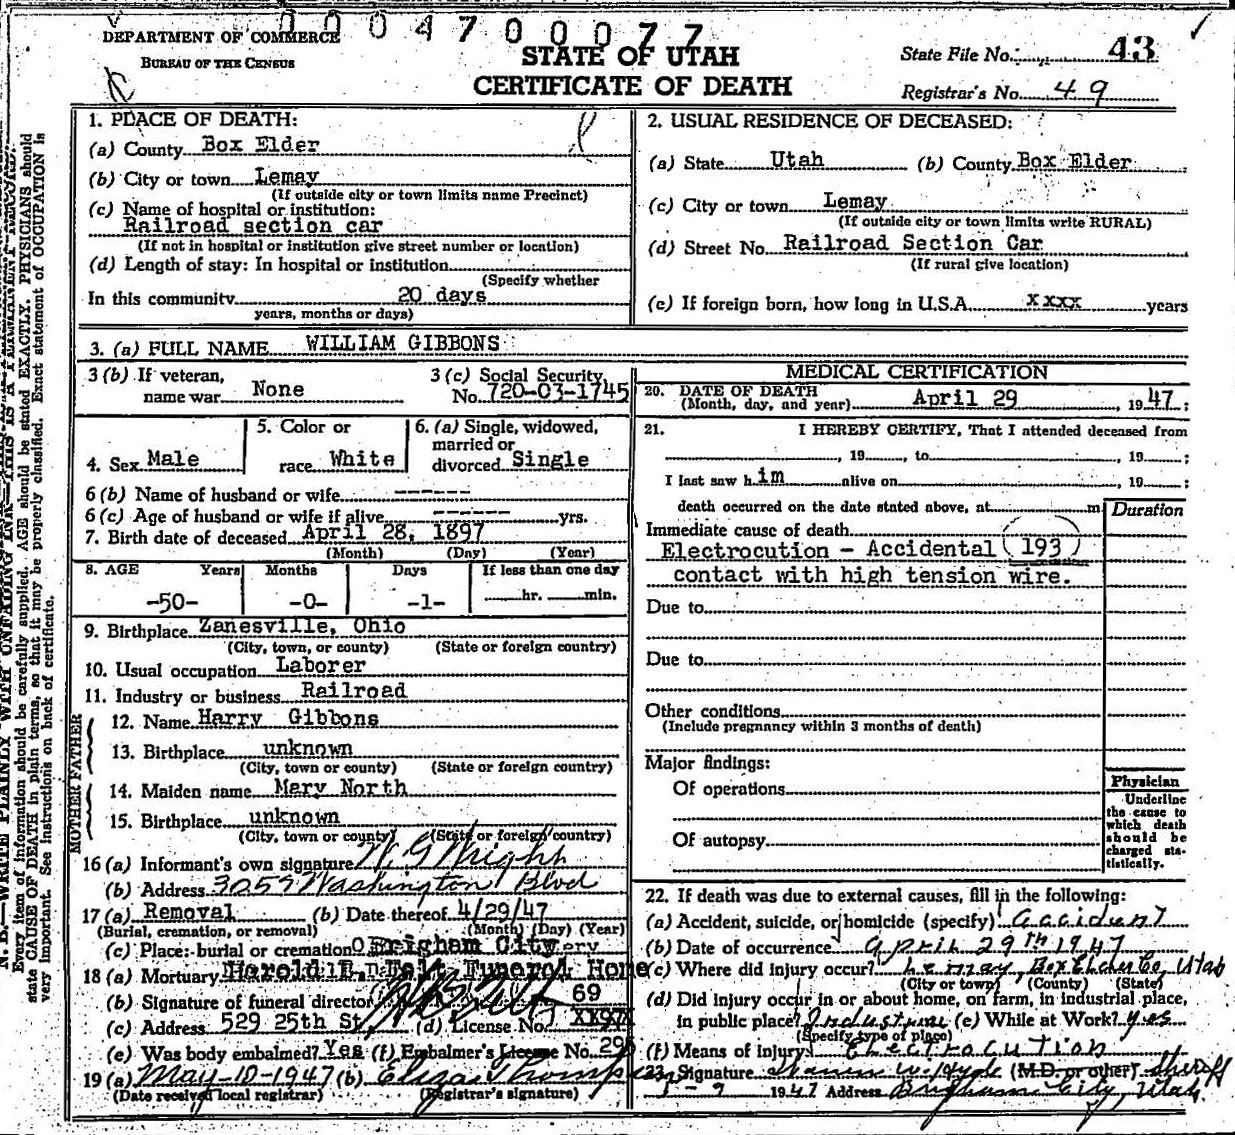 0004700077
DEPARTMENT OF COMMERCE
BUREAU OF THE CENSUS
STATE OF UTAH
CERTIFICATE OF DEATH
State File No. 43
Registrar's No. 49
1. PLACE OF DEATH:
(a) County Box Elder
(b) City or town Lemay
(If outside city or town limits name Precinct)
(c) Name of hospital or institution:
Railroad section car
(If not in hospital or institution give street number or location)
(d) Length of stay: In hospital or institution
(Specify whether
In this community 20 days
years, months or days)
2. USUAL RESIDENCE OF DECEASED:
(a) State Utah (b) County Box Elder
(c) City or town Lemay
(If outside city or town limits write RURAL)
(d) Street No. Railroad Section Car
(If rural give location)
(e) If foreign born, how long in U.S.A. xxxx years
3. (a) FULL NAME WILLIAM GIBBONS
3 (b) If veteran, name war None
3 (c) Social Security No. 720-03-1745
4. Sex Male
5. Color or race White
6. (a) Single, widowed, married or divorced Single
6 (b) Name of husband or wife ------
6 (c) Age of husband or wife if alive ------ yrs.
7. Birth date of deceased April 28, 1897
(Month) (Day) (Year)
8. AGE Years Months Days If less than one day
-50- -0- -1- hr. min.
9. Birthplace Zanesville, Ohio
(City, town, or county) (State or foreign country)
10. Usual occupation Laborer
11. Industry or business Railroad
FATHER
12. Name Harry Gibbons
13. Birthplace unknown
(City, town or county) (State or foreign country)
MOTHER
14. Maiden name Mary North
15. Birthplace unknown
(City, town or county) (State or foreign country)
16 (a) Informant's own signature W. G Wright
(b) Address 3057 Washington Blvd
17 (a) Removal (b) Date thereof 4/29/47
(Burial, cremation, or removal) (Month) (Day) (Year)
(c) Place: burial or cremation Brigham City
18 (a) Mortuary Harold Funeral Home
(b) Signature of funeral director 69
(c) Address 529 25th St (d) License No.
(e) Was body embalmed? Yes (f) Embalmer's License No. 29
19 (a) May-10-1947 (b) Eliza Thompson
(Date received local registrar) (Registrar's signature)
MEDICAL CERTIFICATION
20. DATE OF DEATH
(Month, day, and year) April 29, 1947;
21. I HEREBY CERTIFY, That I attended deceased from
, 19 , to , 19 ;
I last saw him alive on , 19 ;
death occurred on the date stated above, at m. Duration
Immediate cause of death
Electrocution - Accidental (193)
contact with high tension wire.
Due to
Due to
Other conditions
(Include pregnancy within 3 months of death)
Major findings:
Of operations
Of autopsy
Physician
Underline
the cause to
which death
should be
charged sta-
tistically.
22. If death was due to external causes, fill in the following:
(a) Accident, suicide, or homicide (specify) accident
(b) Date of occurrence April 29th 1947
(c) Where did injury occur? Lemay, Box Elder Co, Utah
(City or town) (County) (State)
(d) Did injury occur in or about home, on farm, in industrial place,
in public place? Industrial (e) While at Work? yes
(Specify type of place)
(f) Means of injury Electrocution
23. Signature Warren W. Hyde (M.D. or other) Sheriff
5-9 1947 Address Brigham City, Utah.
N. B.—WRITE PLAINLY WITH UNFADING INK—THIS IS A PERMANENT RECORD.
Every item of information should be carefully supplied. AGE should be stated EXACTLY. PHYSICIANS should
state CAUSE OF DEATH in plain terms, so that it may be properly classified. Exact statement of OCCUPATION is
very important. See instructions on back of certificate.